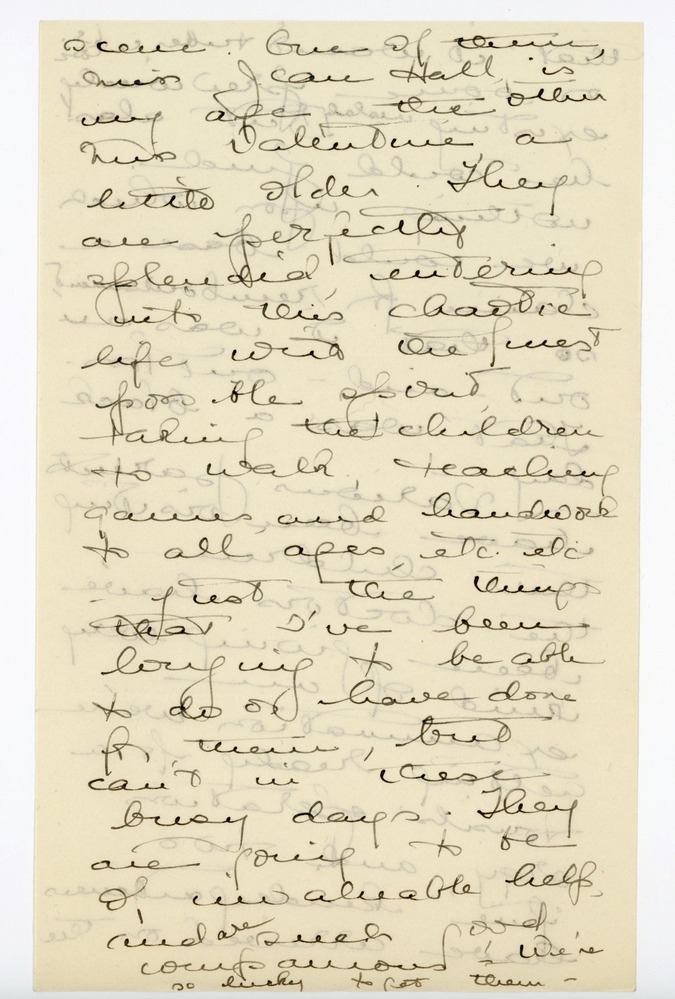 scene. One of them,
Miss Jean Hall, is
my age the other
Miss Valentine a
little older. They
are perfectly
splendid, entering
into this chaotic
life with the finest
possible spirit,
taking the children
to walk, teaching
games, and handwork
to all ages, etc. etc
- just the things
that I've been
longing to be able
to do or have done
for them, but
can't in these
busy days. They
are going to be
of invaluable help,
and are such good
companions! We're
so lucky to get them -